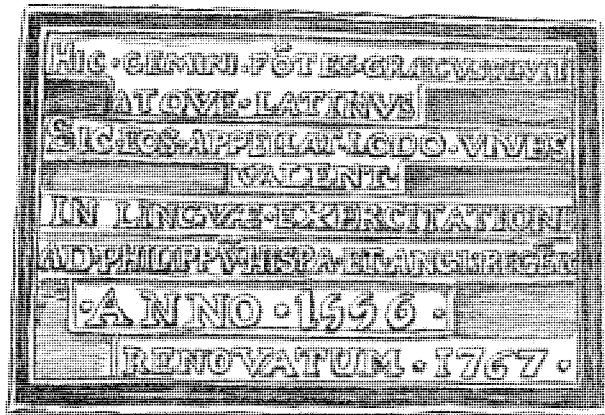 HIC·GEMINI·FŌTES·GRAECVS·FLVIT
ATQVE·LATINVS
SIC·EOS·APPELLAT·LODO·VIVES
VALENT·
IN LINGVÆ·EXERCITATIONE
AD·PHILIPPṼ·HISPA·ET·ANG·REGĒ
·ANNO·1556·
RENOVATUM·1767·